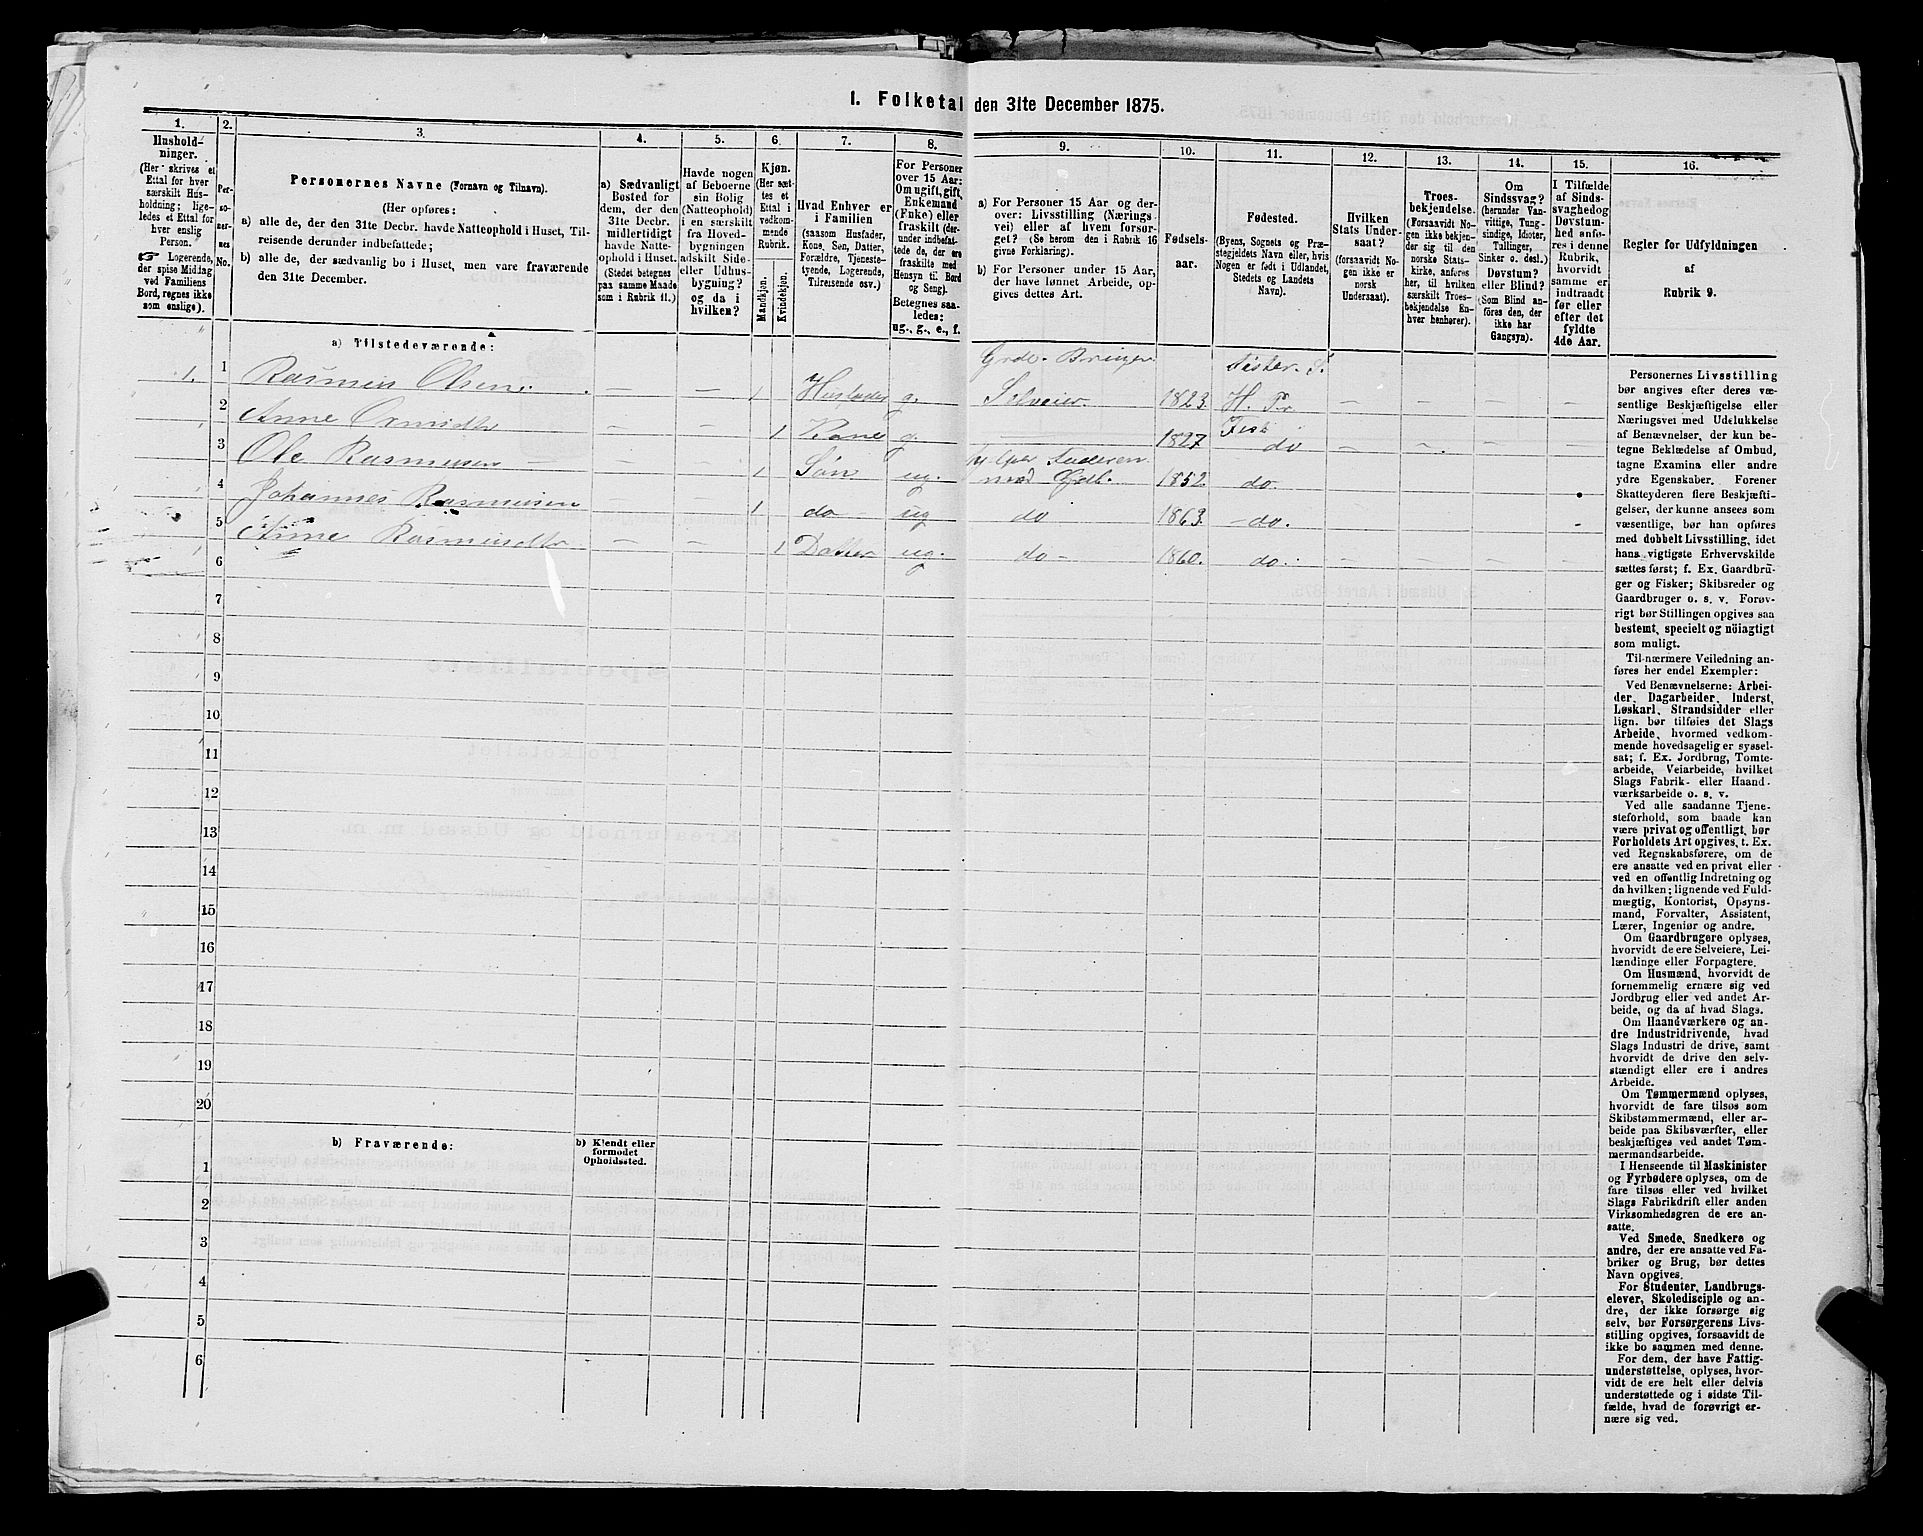 I. Folketal den 31te December 1875.
1.
Hushold-
ninger.
(Her skrives et
Ettal for hver
særskilt Hus-
holdning; lige-
ledes et Ettal for
hver enslig
Person.
☛ Logerende,
der spise Middag
ved Familiens
Bord, regnes ikke
som enslige).
2.
Per-
so-
ner-
nes
No.
3.
Personernes Navne (Fornavn og Tilnavn).
(Her opføres:
a) alle de, der den 31te Decbr. havde Natteophold i Huset, Til-
reisende derunder indbefattede;
b) alle de, der sædvanlig bo i Huset, men vare fraværende
den 31te December.
4.
a) Sædvanligt
Bosted for
dem, der den
31te Decbr.
midlertidigt
havde Natte-
ophold i Huset.
(Stedet betegnes
paa samme Maade
som i Rubrik 11.)
5.
Havde nogen
af Beboerne
sin Bolig
(Natteophold)
i en særskilt
fra Hoved-
bygningen
adskilt Side-
eller Udhus-
bygning?
og da i
hvilken?
6.
Kjøn.
(Her sæt-
tes et
Ettal i
vedkom-
mende
Rubrik.
Mandkjøn.
Kvindekjøn.
7.
Hvad Enhver er
i Familien
(saasom Husfader,
Kone, Søn, Datter,
Forældre, Tjeneste-
tyende, Logerende,
Tilreisende osv.)
8.
For Personer
over 15 Aar:
Om ugift, gift,
Enkemand
(Enke) eller
fraskilt (der-
under indbefat-
tede de, der ere
fraskilte med
Hensyn til Bord
og Seng).
Betegnes saa-
ledes:
ug., g., e., f.
9.
a) For Personer 15 Aar og der-
over: Livsstilling (Nærings-
vei) eller af hvem forsør-
get? (Se herom den i Rubrik 16
givne Forklaring).
b) For Personer under 15 Aar,
der have lønnet Arbeide, op-
gives dettes Art.
10.
Fødsels-
aar.
11.
Fødested.
(Byens, Sognets og Præ-
stegjeldets Navn eller, hvis
Nogen er født i Udlandet,
Stedets og Landets
Navn).
12.
Hvilken
Stats Under-
saat?
(forsaavidt No-
gen ikke er
norsk
Undersaat).
13.
Troes-
bekjendelse.
(Forsaavidt No-
gen ikke bekjen-
der sig til den
norske Stats-
kirke, anføres
her, til hvilken
særskilt Troes-
bekjendelse En-
hver henhører).
14.
Om
Sindssvag?
(herunder Van-
vittige, Tung-
sindige, Idioter,
Tullinger,
Sinker o. desl.)
Døvstum?
eller Blind?
(Som Blind an-
føres den, der
ikke har
Gangsyn).
15.
I Tilfælde
af Sinds-
svaghed og
Døvstum-
hed anfø-
res i denne
Rubrik,
hvorvidt
samme er
indtraadt
før eller
efter det
fyldte
4de Aar.
16.
Regler for Udfyldningen
af
Rubrik 9.
a) Tilstedeværende:
1 1. Rasmus Olsen — — 1 Husfader g. Grdb. Selveier 1823. Fister S. H. Pr — — — —
2 Anne Ormsdtr — — 1 Kone g. 1827 do — — — —
3 Ole Rasmussen — — 1 Søn ug. hjelper Faderen med Gdb. 1852 do
4 Johannes Rasmussen — — 1 do ug do 1863. do.
5 Anne Rasmusdtr — — 1 Datter ug. do 1860. do.
6
7
8
9
10
11
12
13
14
15
16
17
18
19
20
b) Fraværende:
b) Kjendt eller
formodet
Opholdssted.
1
2
3
4
5
6
Personernes Livsstilling
bør angives efter deres væ-
sentlige Beskjæftigelse eller
Næringsvei med Udelukkelse
af Benævnelser, der kun be-
tegne Beklædelse af Ombud,
tagne Examina eller andre
ydre Egenskaber. Forener
Skatteyderen flere Beskjæfti-
gelser, der kunne ansees som
væsentlige, bør han opføres
med dobbelt Livsstilling, idet
hans vigtigste Erhvervskilde
sættes først; f. Ex. Gaardbru-
ger og Fisker; Skibsreder og
Gaardbruger o. s. v. Forøv-
rigt bør Stillingen opgives saa
bestemt, specielt og nöiagtigt
som muligt.
Til nærmere Veiledning an-
føres her endel Exempler:
Ved Benævnelserne: Arbei-
der, Dagarbeider, Inderst,
Løskarl, Strandsidder eller
lign. bør tilføies det Slags
Arbeide, hvormed vedkom-
mende hovedsagelig er syssel-
sat; f. Ex. Jordbrug, Tomte-
arbeide, Veiarbeide, hvilket
Slags Fabrik- eller Haand-
værksarbeide o. s. v.
Ved alle saadanne Tjene-
steforhold, som baade kan
være privat og offentligt, bør
Forholdets Art opgives, t. Ex.
ved Regnskabsførere, om de
ere ansatte ved en privat eller
ved en offentlig Indretning og
da hvilken; lignende ved Fuld-
mægtig, Kontorist, Opsyns-
mand, Forvalter, Assistent,
Lærer, Ingeniør og andre.
Om Gaardbrugere oplyses,
hvorvidt de ere Selveiere, Lei-
lændinge eller Forpagtere.
Om Husmænd, hvorvidt de
fornemmelig ernære sig ved
Jordbrug eller ved andet Ar-
beide, og da af hvad Slags.
Om Haandværkere og an-
dre Industridrivende, hvad
Slags Industri de drive, samt
hvorvidt de drive den selv-
stændigt eller ere i andres
Arbeide.
Om Tømmermænd oplyses,
hvorvidt de fare tilsøs som
Skibstømmermænd, eller ar-
beide paa Skibsværfter, eller
beskjæftiges ved andet Tøm-
mermandsarbeide.
I Henseende til Maskinister
og Fyrbødere oplyses, om de
fare tilsøs eller ved hvilket
Slags Fabrikdrift eller anden
Virksomhedsgren de ere an-
satte.
Ved Smede, Snedkere og
andre, der ere ansatte ved Fa-
briker og Brug, bør dettes
Navn opgives.
For Studenter, Landbrugs-
elever, Skoledisciple og an-
dre, der ikke forsørge sig
selv, bør Forsørgerens Livs-
stilling opgives, forsaavidt de
ikke bo sammen med denne.
For dem, der have Fattig-
understøttelse, oplyses, hvor-
vidt de ere helt eller delvis
understøttede og i sidste Til-
fælde, hvad de forøvrigt er-
nære sig ved.